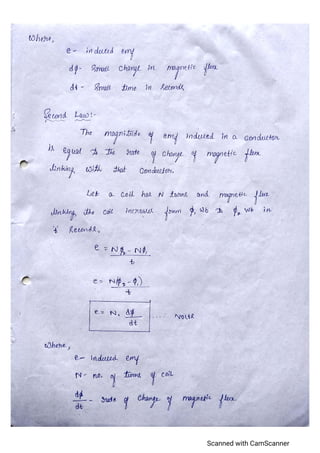 Where,
e - induced emf
dφ - Small change in magnetic flux
dt - Small time in seconds
Second Law:-
The magnitude of emf induced in a conductor
is equal to the rate of change of magnetic flux
linking with that conductor.
Let a coil has N turns and magnetic flux
linking the coil increased from φ₁ Wb to φ₂ Wb in
't' seconds,
e = Nφ₂ - Nφ₁
t
e = N(φ₂ - φ₁)
t
e = N. dφ
dt
.... volts
Where,
e - Induced emf
N - no. of turns of coil
dφ
dt
- rate of change of magnetic flux.
Scanned with CamScanner